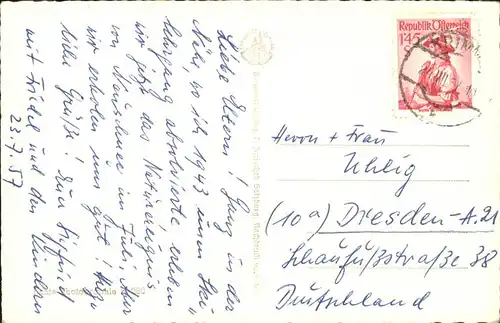 Liebe Eltern! Ganz in der
Nähe, wo ich 1943 einen
Lehrgang absolvierte erleben
wir jetzt das Naturereignis
von Neuschnee im Juli, aber
wir erholen uns gut!
liebe Grüße! Euer Siegfried
mit Friedel und den Kindern
23.7.57
Republik Österreich
1'45
Herrn + Frau
Uhlig
(10a) Dresden-A.21
Schaufußstraße 38
Deutschland